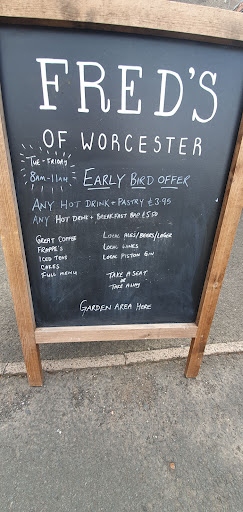 FRED'S
OF WORCESTER
TUE-FRIDAY
8AM-11AM
EARLY BIRD OFFER
ANY HOT DRINK + PASTRY £3.95
ANY HOT DRINK + BREAKFAST BAP £5.50
GREAT COFFEE
FRAPPE'S
ICED TEAS
CAKES
FULL MENU
LOCAL ALES/BEERS/LAGER
LOCAL WINES
LOCAL PISTON GIN
TAKE A SEAT
OR
TAKE AWAY
GARDEN AREA HERE